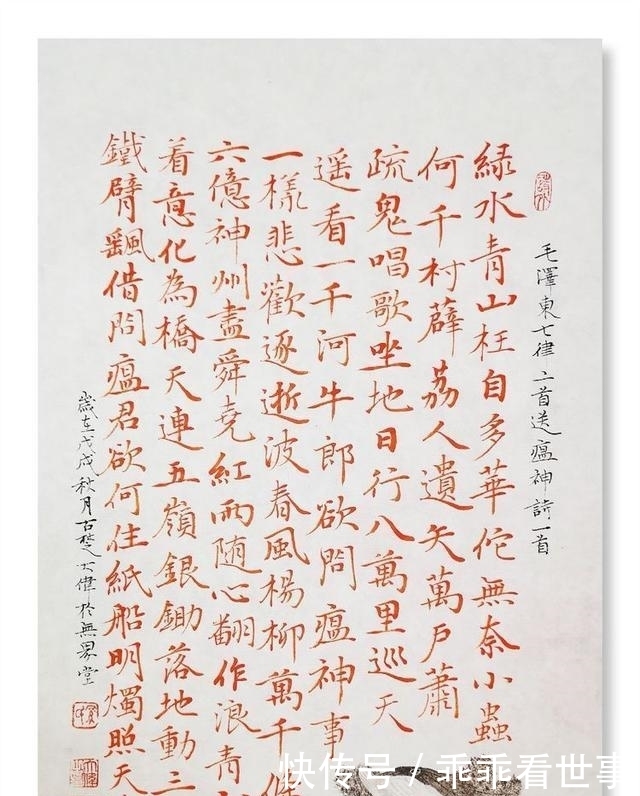 毛澤東七律二首送瘟神詩一首
緑水青山枉自多華佗無奈小蟲
何千村薜荔人遺矢萬戶蕭
疏鬼唱歌坐地日行八萬里巡天
遥看一千河牛郎欲問瘟神事
一樣悲歡逐逝波春風楊柳萬千條
六億神州盡舜堯紅雨随心翻作浪青
着意化為橋天連五嶺銀鋤落地動三
鐵臂颻借問瘟君欲何往紙船明燭照天
歲在戊戌秋月古楚大偉於無界堂
快传号／乖乖看世事